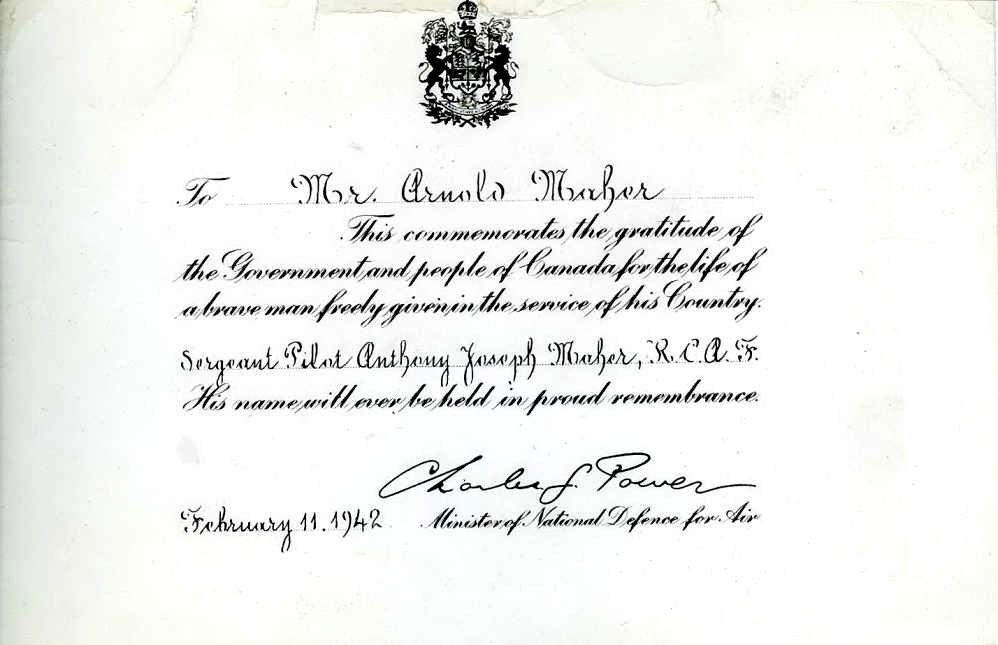 To Mr. Arnold Maher
This commemorates the gratitude of
the Government and people of Canada for the life of
a brave man freely given in the service of his Country.
Sergeant Pilot Anthony Joseph Maher, R. C. A. F.
His name will ever be held in proud remembrance.
Charles G. Power
February 11. 1942 Minister of National Defence for Air